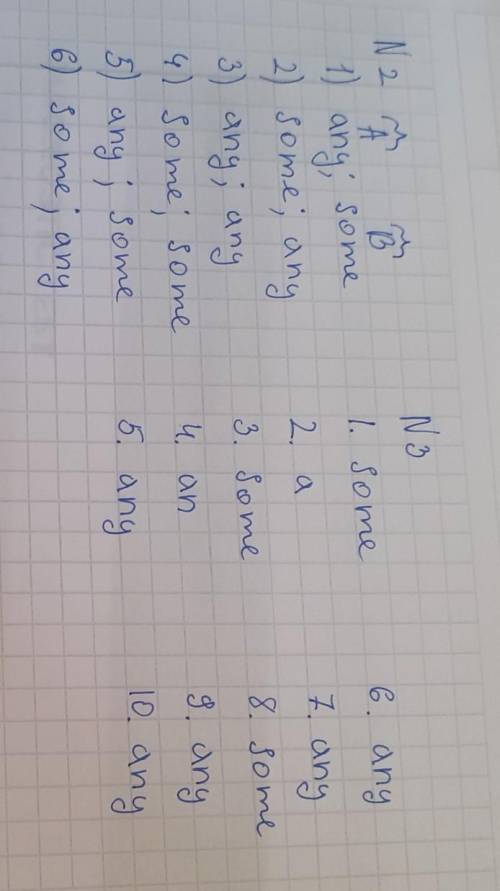 N 2 N 3
A B
1) any; some
2) some; any
3) any; any
4) some; some
5) any; some
6) some; any
1. some
2. a
3. some
4. an
5. any
6. any
7. any
8. some
9. any
10. any